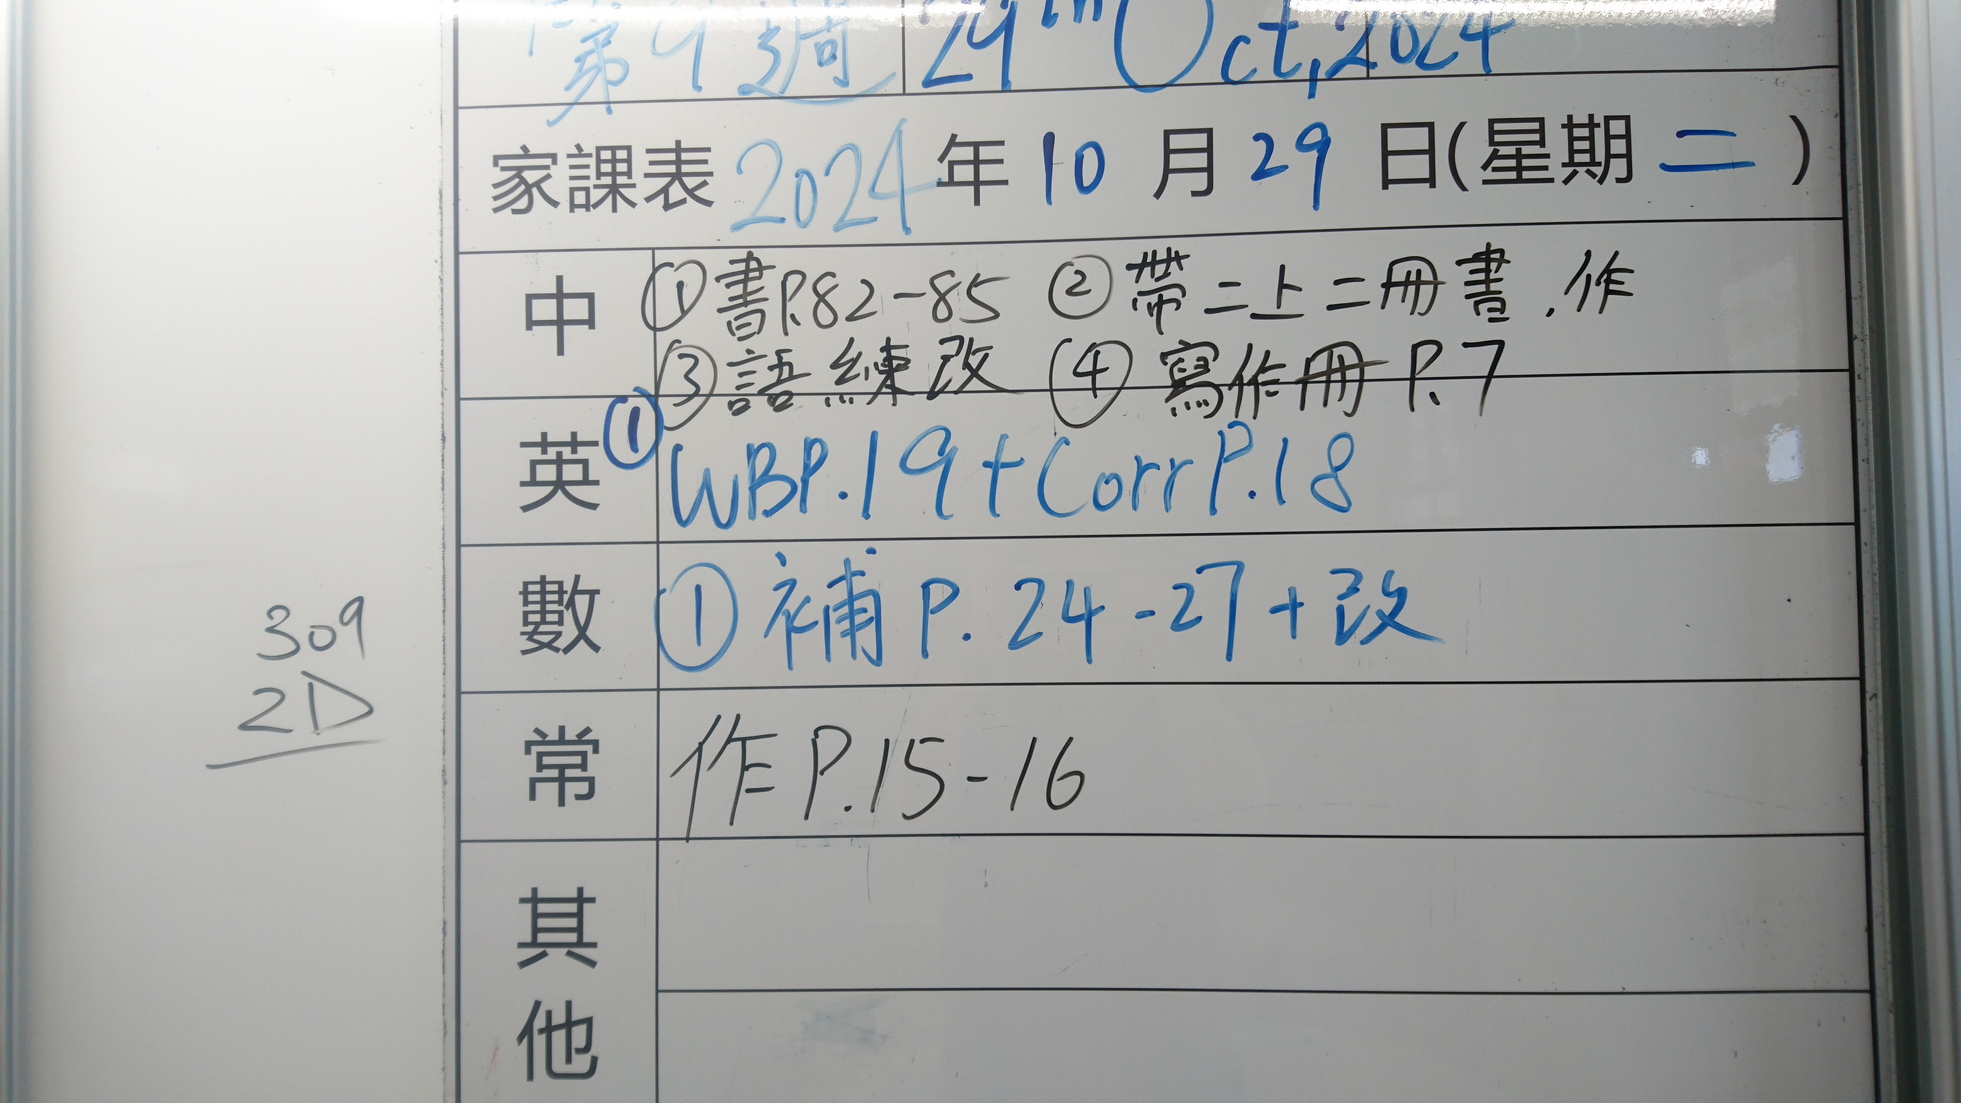 第9週 29th Oct, 2024
家課表 2024 年 10 月 29 日(星期 二 )
中 ①書P.82-85 ②帶二上二冊書、作
③語練改 ④寫作冊 P.7
英 ① WBP.19+Corr P.18
數 ① 補 P. 24-27+改
309
2D
常 作 P.15-16
其
他